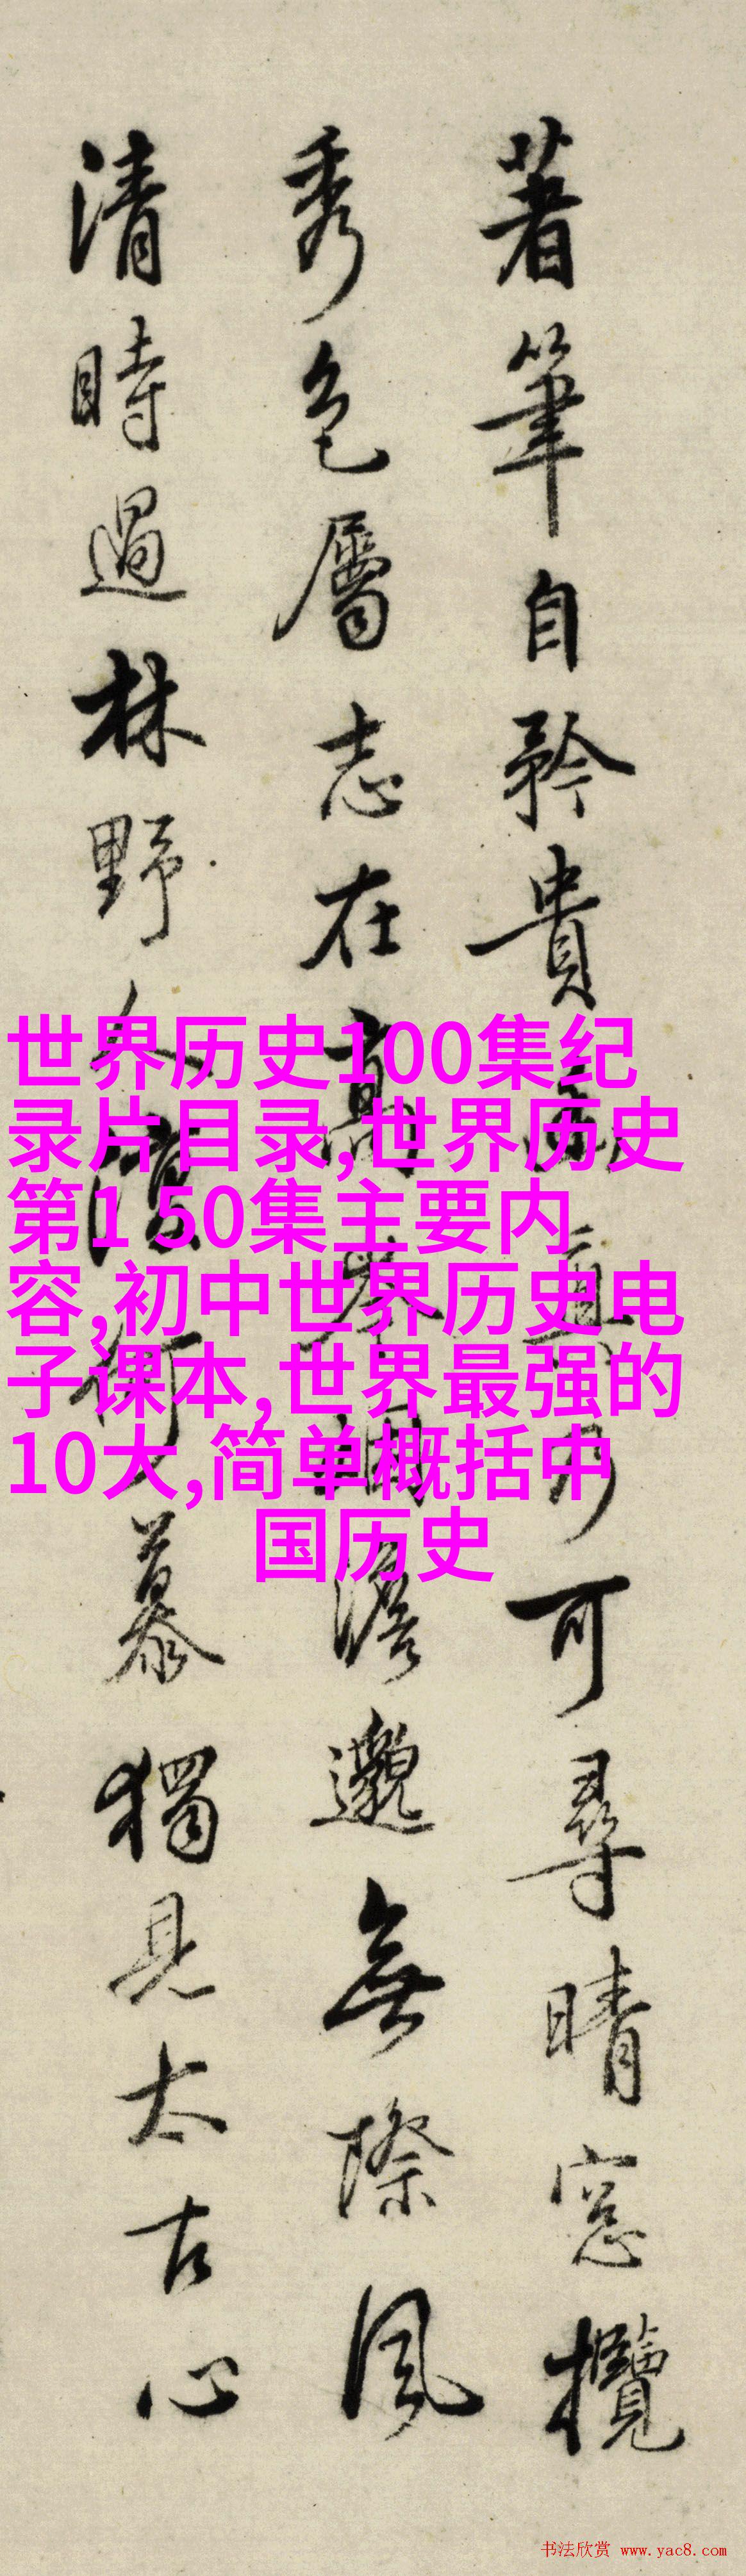 著筆自矜貴可尋晴窓攬
秀色屬志在高澹邈無際風
清時過林野人何慕獨見太古心
世界历史100集纪
录片目录,世界历史
第1 50集主要内
容,初中世界历史电
子课本,世界最强的
10大,简单概括中
国历史
书法欣赏 www.yac8.com